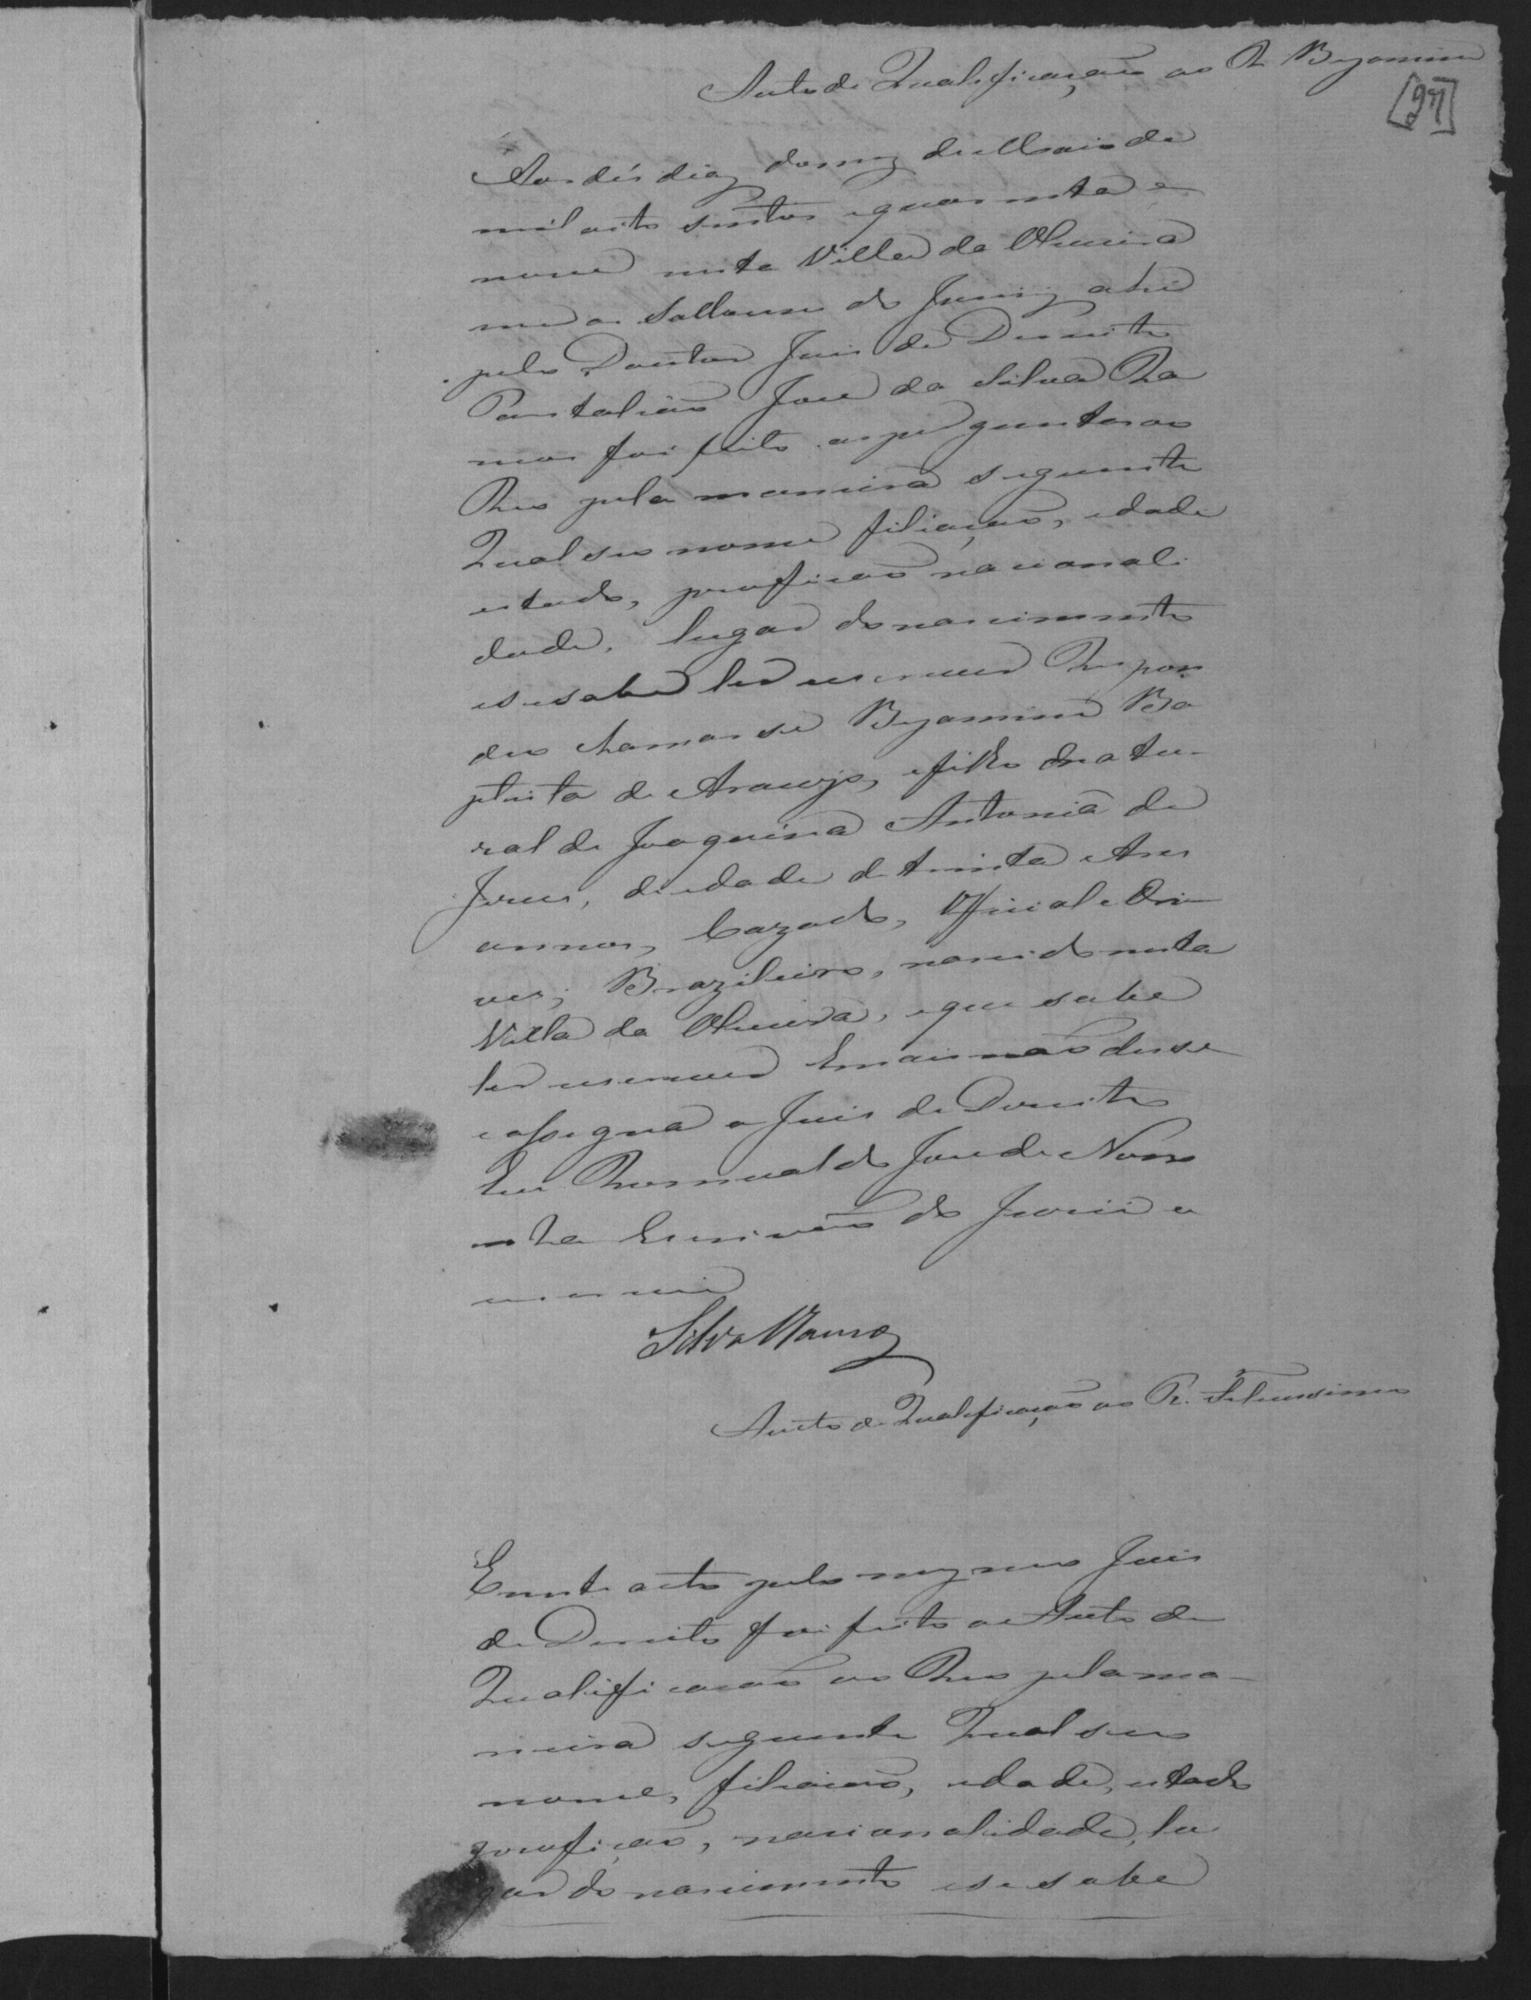 Auto de Qualificação ao R. Bejamim
[97]
Aos dés dias do mez de Maio de
mil oito sentos e quarenta e
nove nesta Villa da Oliveira
em a Salla
pelo Doutor Juis de Dereito
Pantalião Jose da Silva Ra
mos foi feito as perguntas ao
Reo pela maneira seguente
Qual seu nome filiação, edade
estado, proficão nacionali
dade, lugar do nascimento
e se sabe ler e escrever Respon
deo chamar se Bejamim Ba
ptista de Araujo, e filho natu-
ral de Joaquina Antonia de
Jesus, de edade de trinta e tres
annos, Cazado, Official e Ori-
ves, Brazileiro, nascido nesta
Villa da Oliveira, e que sabe
ler e escrever E mais não disse
e assigna o Juis de Dereito
Eu Romualdo Jose de Noro
nha Escrivão do Jurii o
escrevi
Silva Ramos
Auto de Qualificação ao R.
E neste acto pelo mesmo Juis
de Dereito foi feito o Auto de
Qualificacão ao Reo pela ma-
neira seguente Qual seu
nome, filiacão, edade, estado
proficão, nacionalidade, lu
gar do nascimento e se sabe